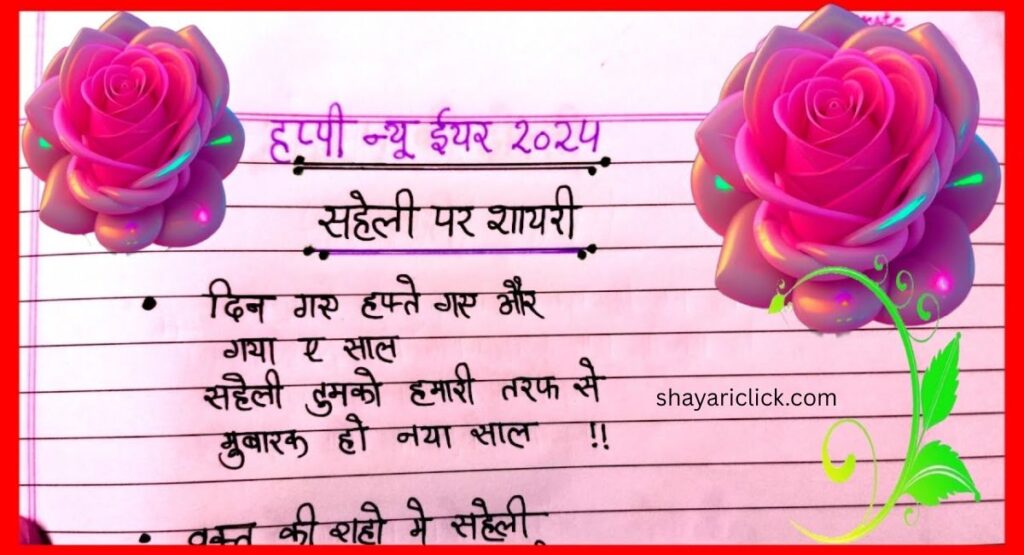 हप्पी न्यू ईयर २०२५
सहेली पर शायरी
• दिन गए हफ्ते गए और
गया ए साल
सहेली तुमको हमारी तरफ से
shayariclick.com
मुबारक हो नया साल !!
• वक्त की राहो मे सहेली